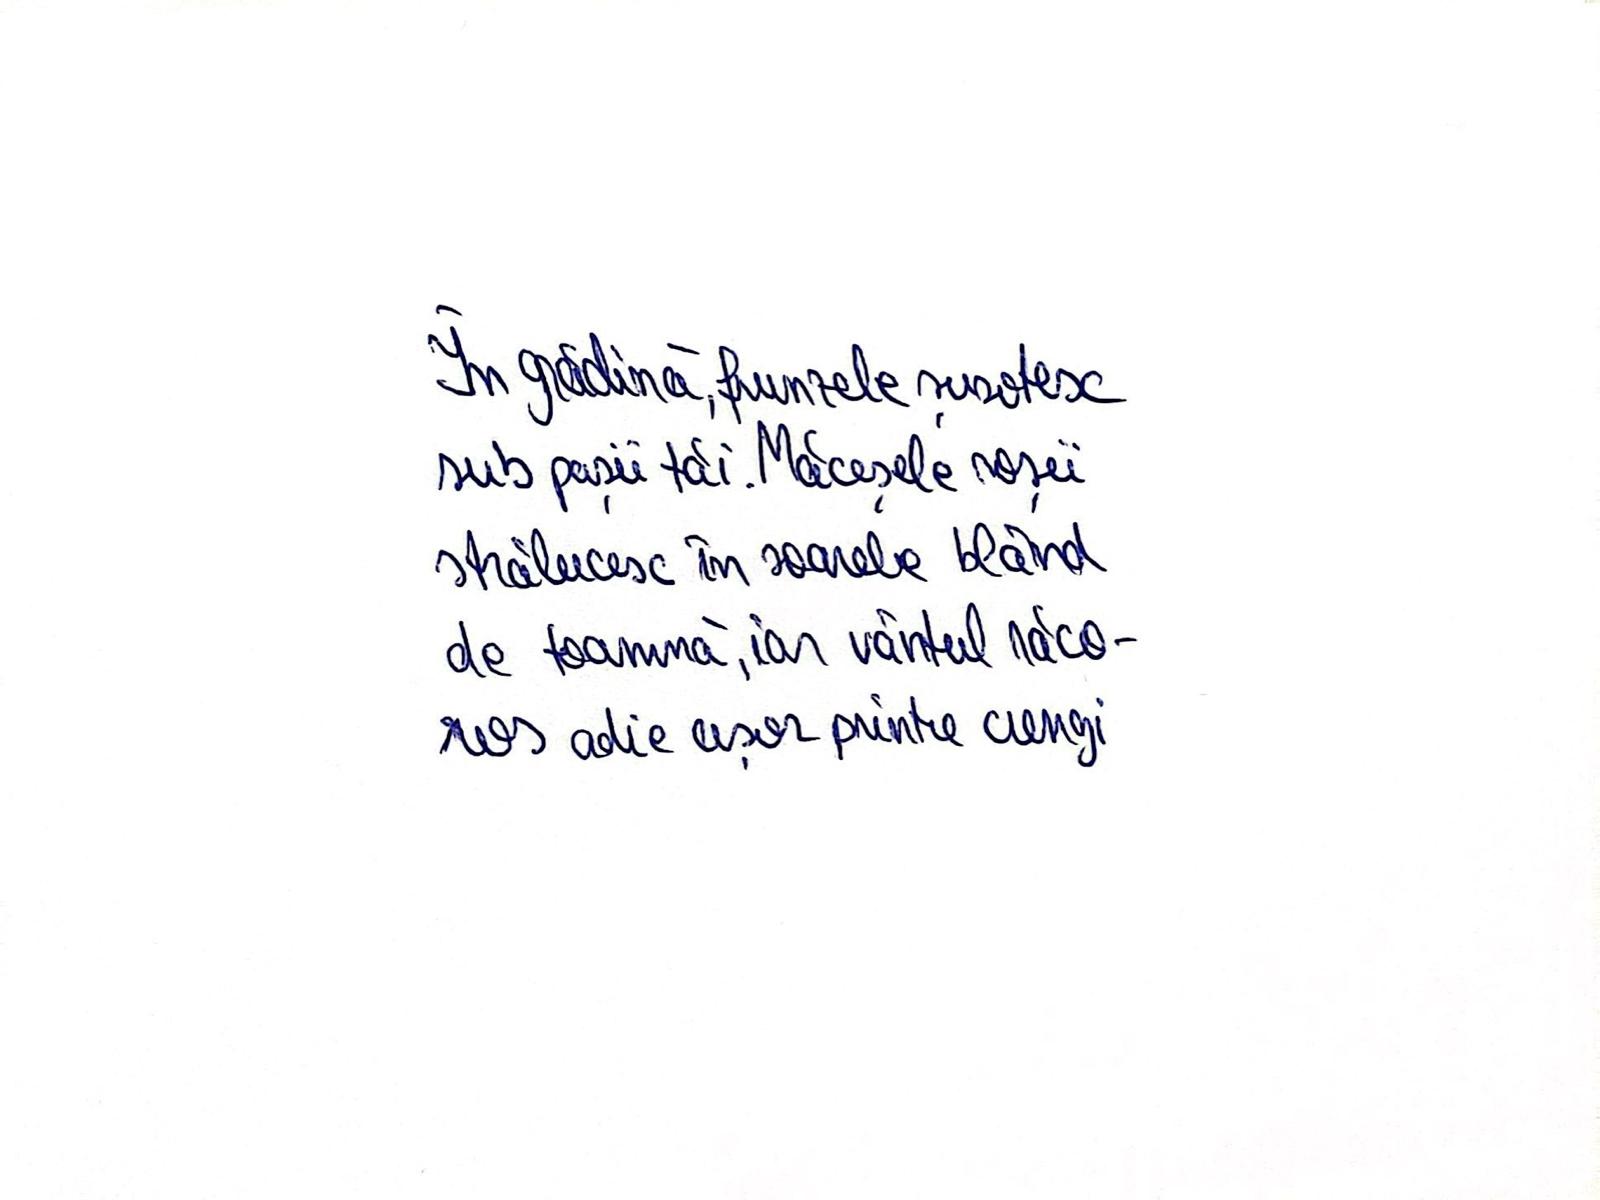 În grădină, frunzele șușotesc
sub pașii tăi. Măceșele roșii
strălucesc în soarele blând
de toamnă, iar vântul răco-
ros adie ușor printre crengi